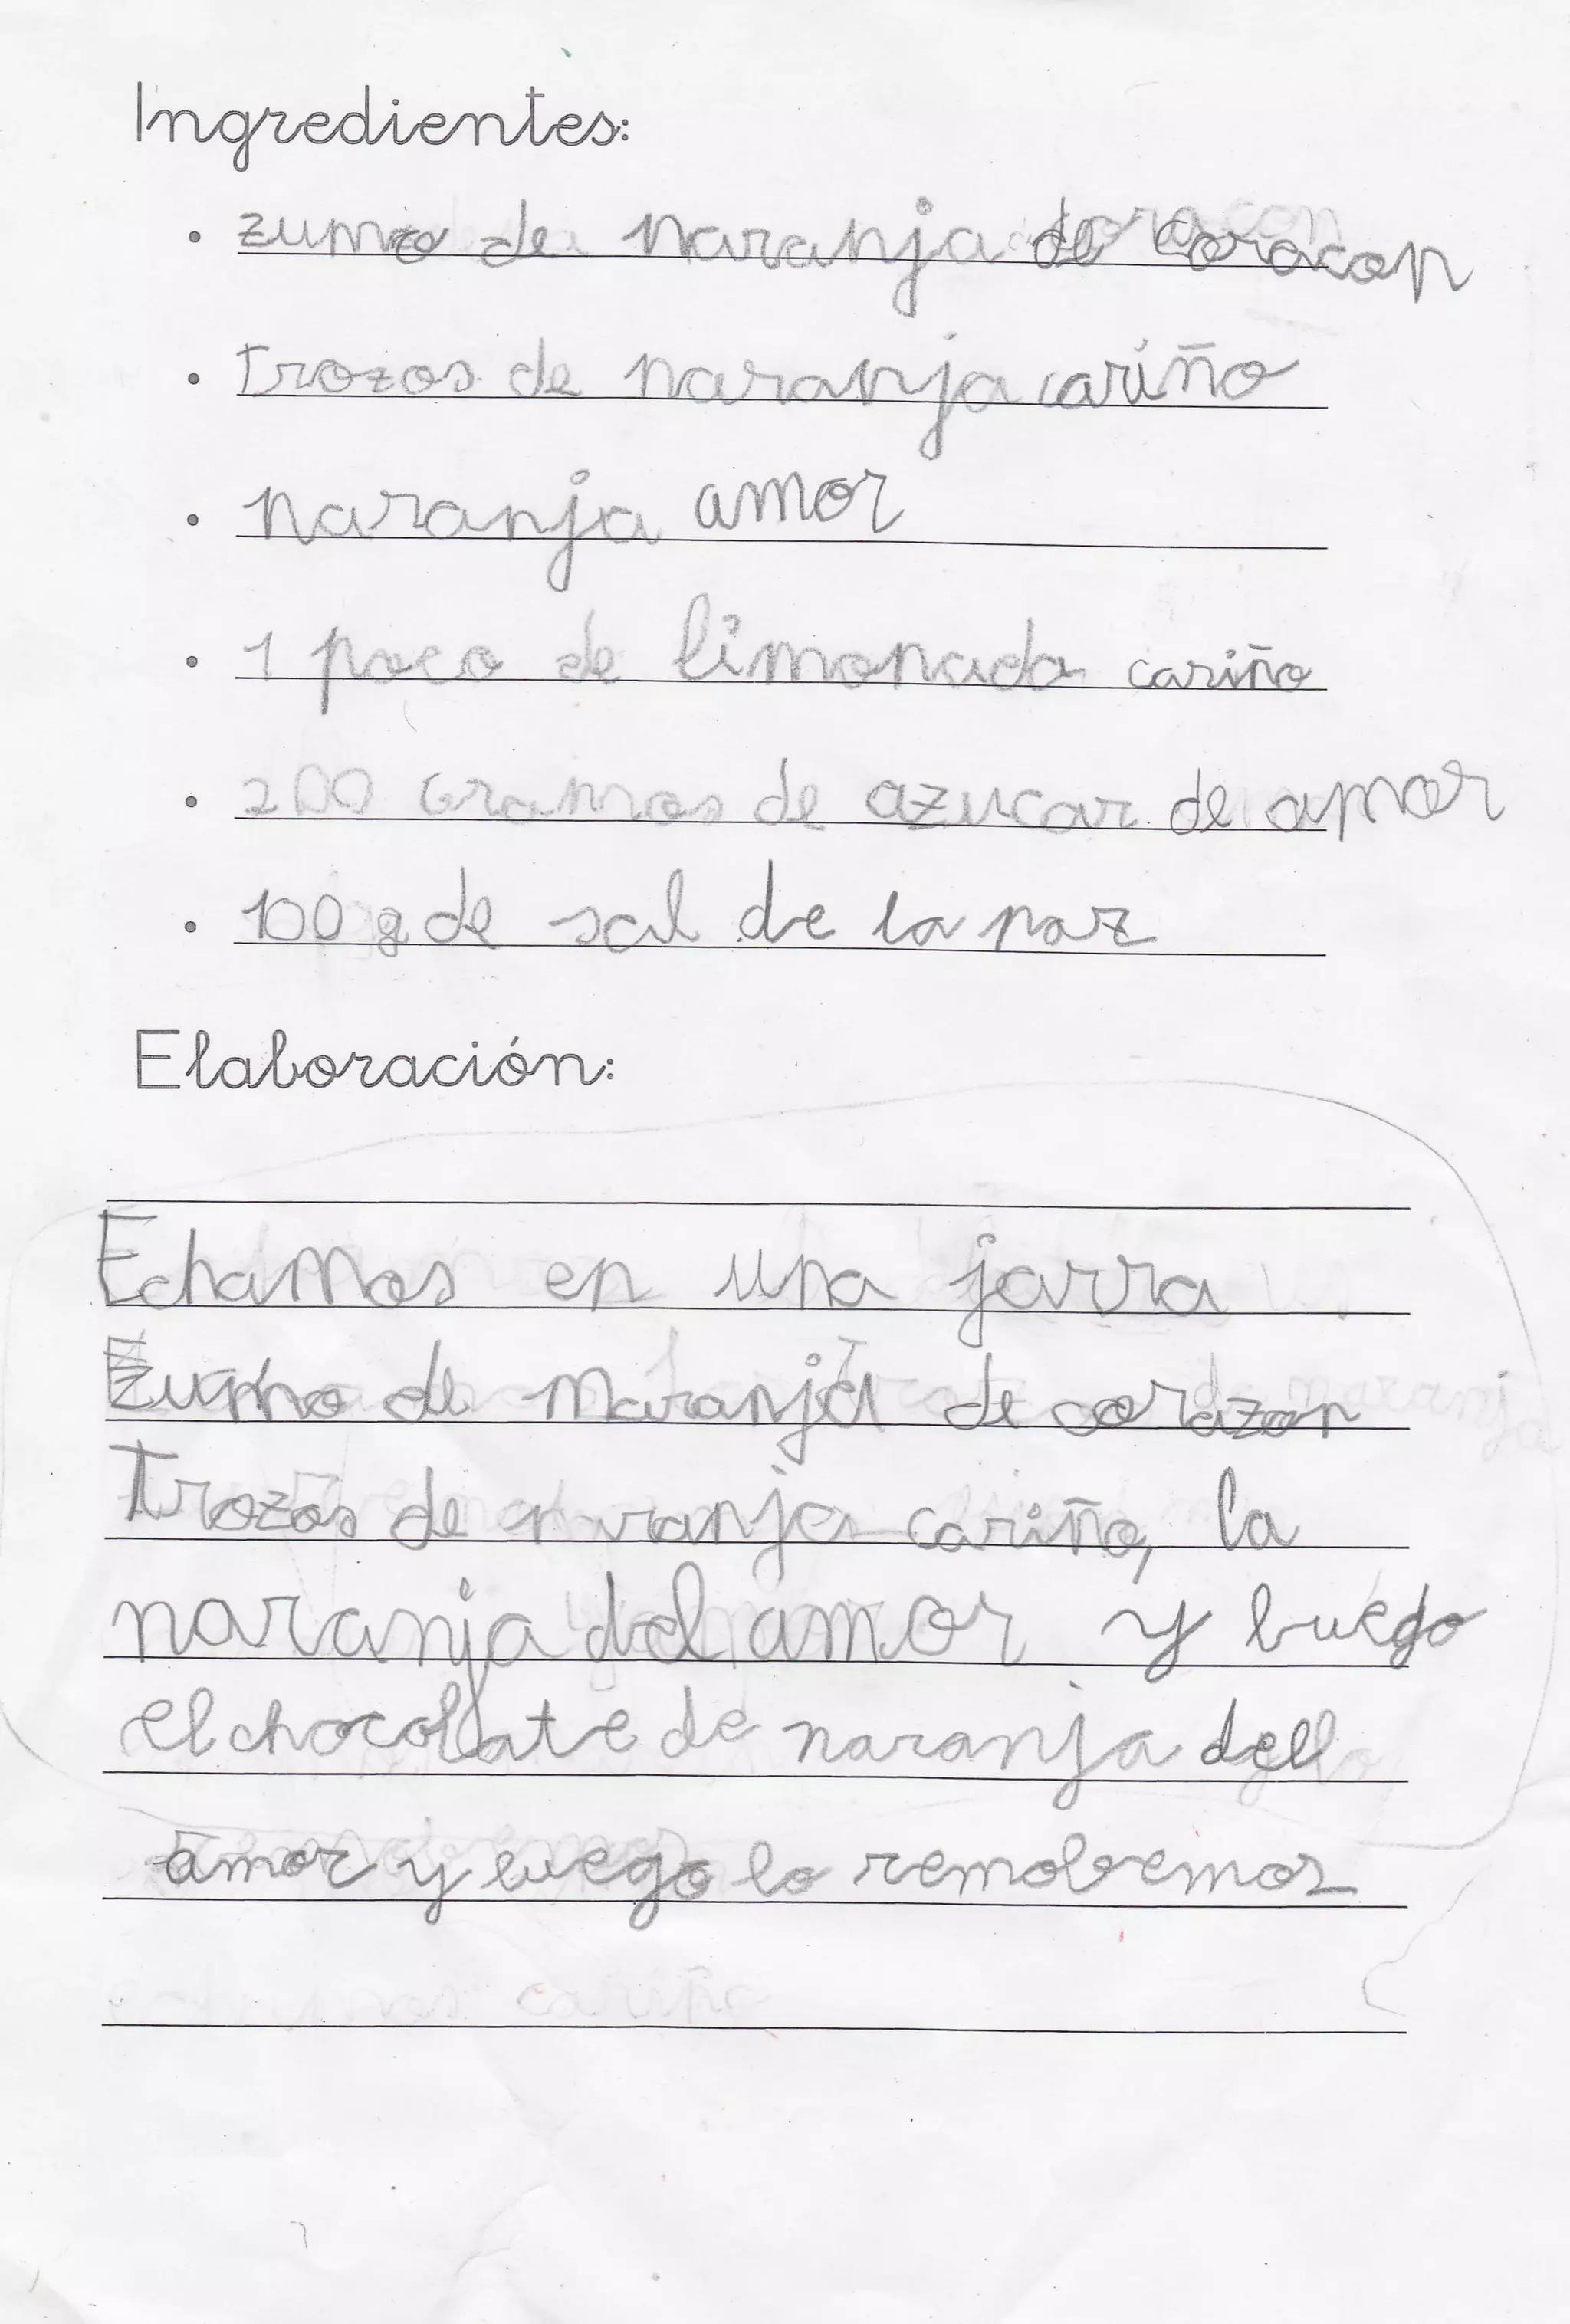 Ingredientes:
• zumo de naranja de coracon
• trozos de naranja cariño
• naranja amor
• 1 poco de limonada cariño
• 200 Gramos de azucar de amor
• 100 g de sal de la paz
Elaboración:
Echamos en una jarra
Zumo de naranja de corazon
Trozos de naranja cariño, la
naranja del amor y luego
el chocolate de naranja dell
amor y luego lo removemos